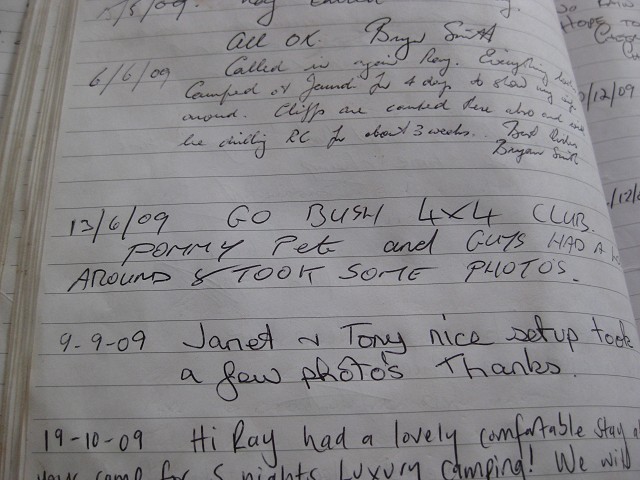 All OK. Bryan Smith
6/6/09 Called in again Ray. Everything
Camped at for 4 days to show my
around. Cliffs are camped there also and
be RC for about 3 weeks. Best
Bryan Smith
13/6/09 GO BUSH 4x4 CLUB.
POMMY Pete and GUYS HAD A
AROUND & TOOK SOME PHOTO'S.
9-9-09 Janet ~ Tony nice setup took
a few photo's Thanks.
19-10-09 Hi Ray had a lovely comfortable stay
your camp for 5 nights Luxury camping! We will
HOPE TO
/12/09